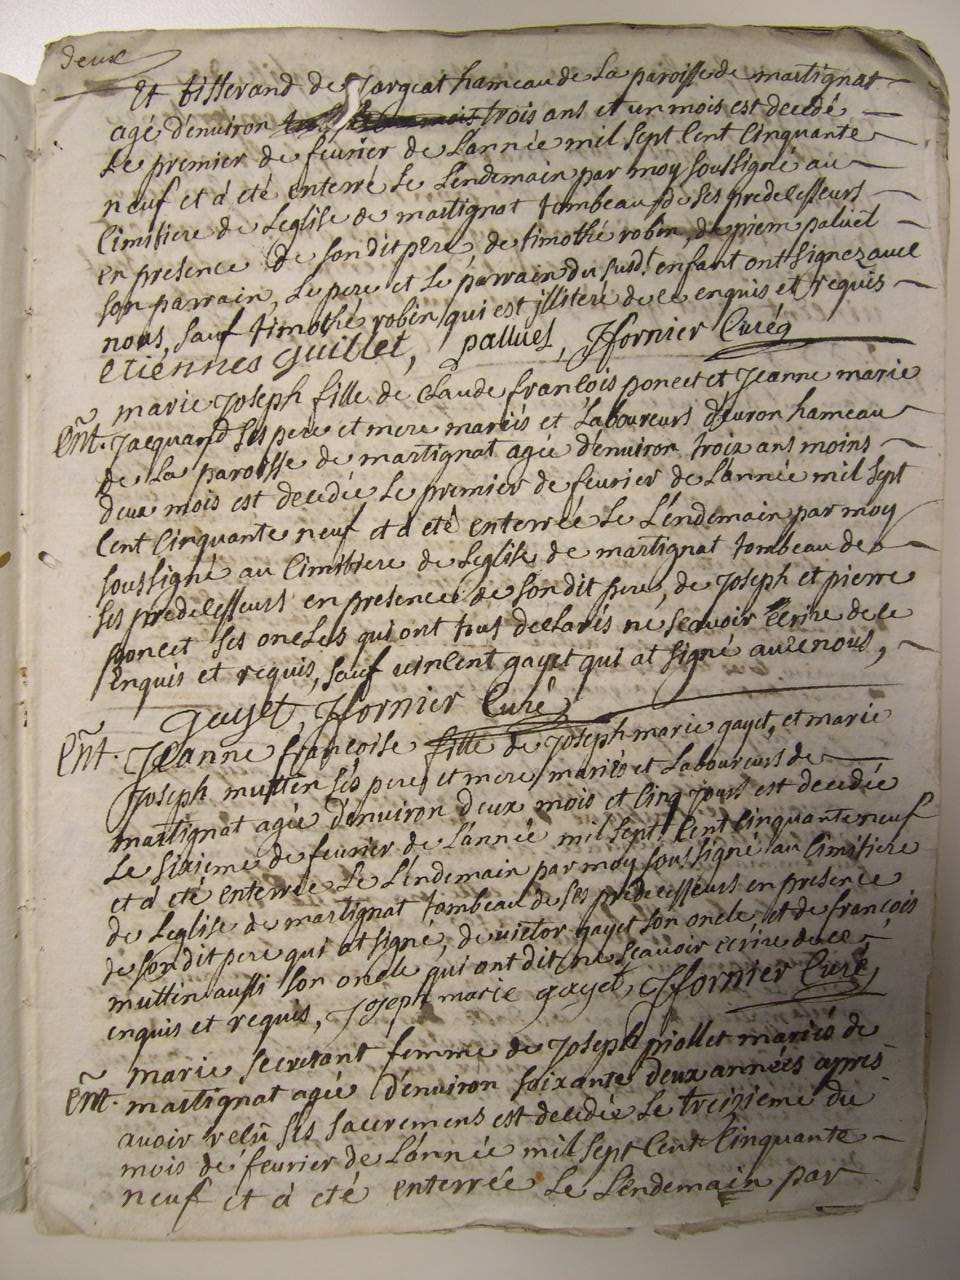 deux
Et tisserand de Jargeat hameau de La paroisse de martignat
agé d'environ trois ans et un mois est decedé
Le premier de fevrier de L'année mil sept Cent Cinquante
neuf et à été enterré Le Lendemain par moy soussigné au
Cimitiere de L'eglise de martignat tombeau de ses predecesseurs
en presence de son dit pere, de timothé robin, de pierre paluet
son parrain, Le pere et Le parrain du susd.t enfant ont signez avec
nous, sauf timothé robin qui est illiteré de ce enquis et requis
etiennes guillet, palluet, Jfornier Curé
marie Joseph fille de Claude françois poncet et Jeanne marie
Ent. Jacquand ses pere et mere mariés et Laboureurs d'evron hameau
de La paroisse de martignat agée d'environ troix ans moins
deux mois est decedée Le premier de fevrier de L'année mil sept
Cent Cinquante neuf et à été enterrée Le Lendemain par moy
soussigné au Cimitiere de L'eglise de martignat tombeau de
ses predecesseurs en presence de son dit pere, de Joseph et pierre
poncet ses oncles qui ont tous declarés ne sçavoir ecrire de ce
enquis et requis, sauf vincent gayet qui at signé avec nous,
gayet, Jfornier Curé
Ent. Jeanne françoise fille de Joseph marie gayet, et marie
Joseph muttin ses pere et mere mariés et Laboureurs de
martignat agée d'environ deux mois et cinq jours est decedée
Le sixieme de fevrier de L'année mil sept Cent Cinquante neuf
et à été enterrée Le Lendemain par moy soussigné au Cimitiere
de L'eglise de martignat tombeau de ses predecesseurs en presence
de son dit pere qui at signé, de victor gayet son oncle et de françois
muttin aussi son oncle qui ont dit ne sçavoir ecrire de ce
enquis et requis, Joseph marie gayet, Jfornier Curé
marie secretant femme de Joseph piollet mariés de
Ent. martignat agée d'environ soixante deux années apres
avoir reçû ses sacremens est decedée Le treizieme du
mois de fevrier de L'année mil sept Cent Cinquante
neuf et à été enterrée Le Lendemain par